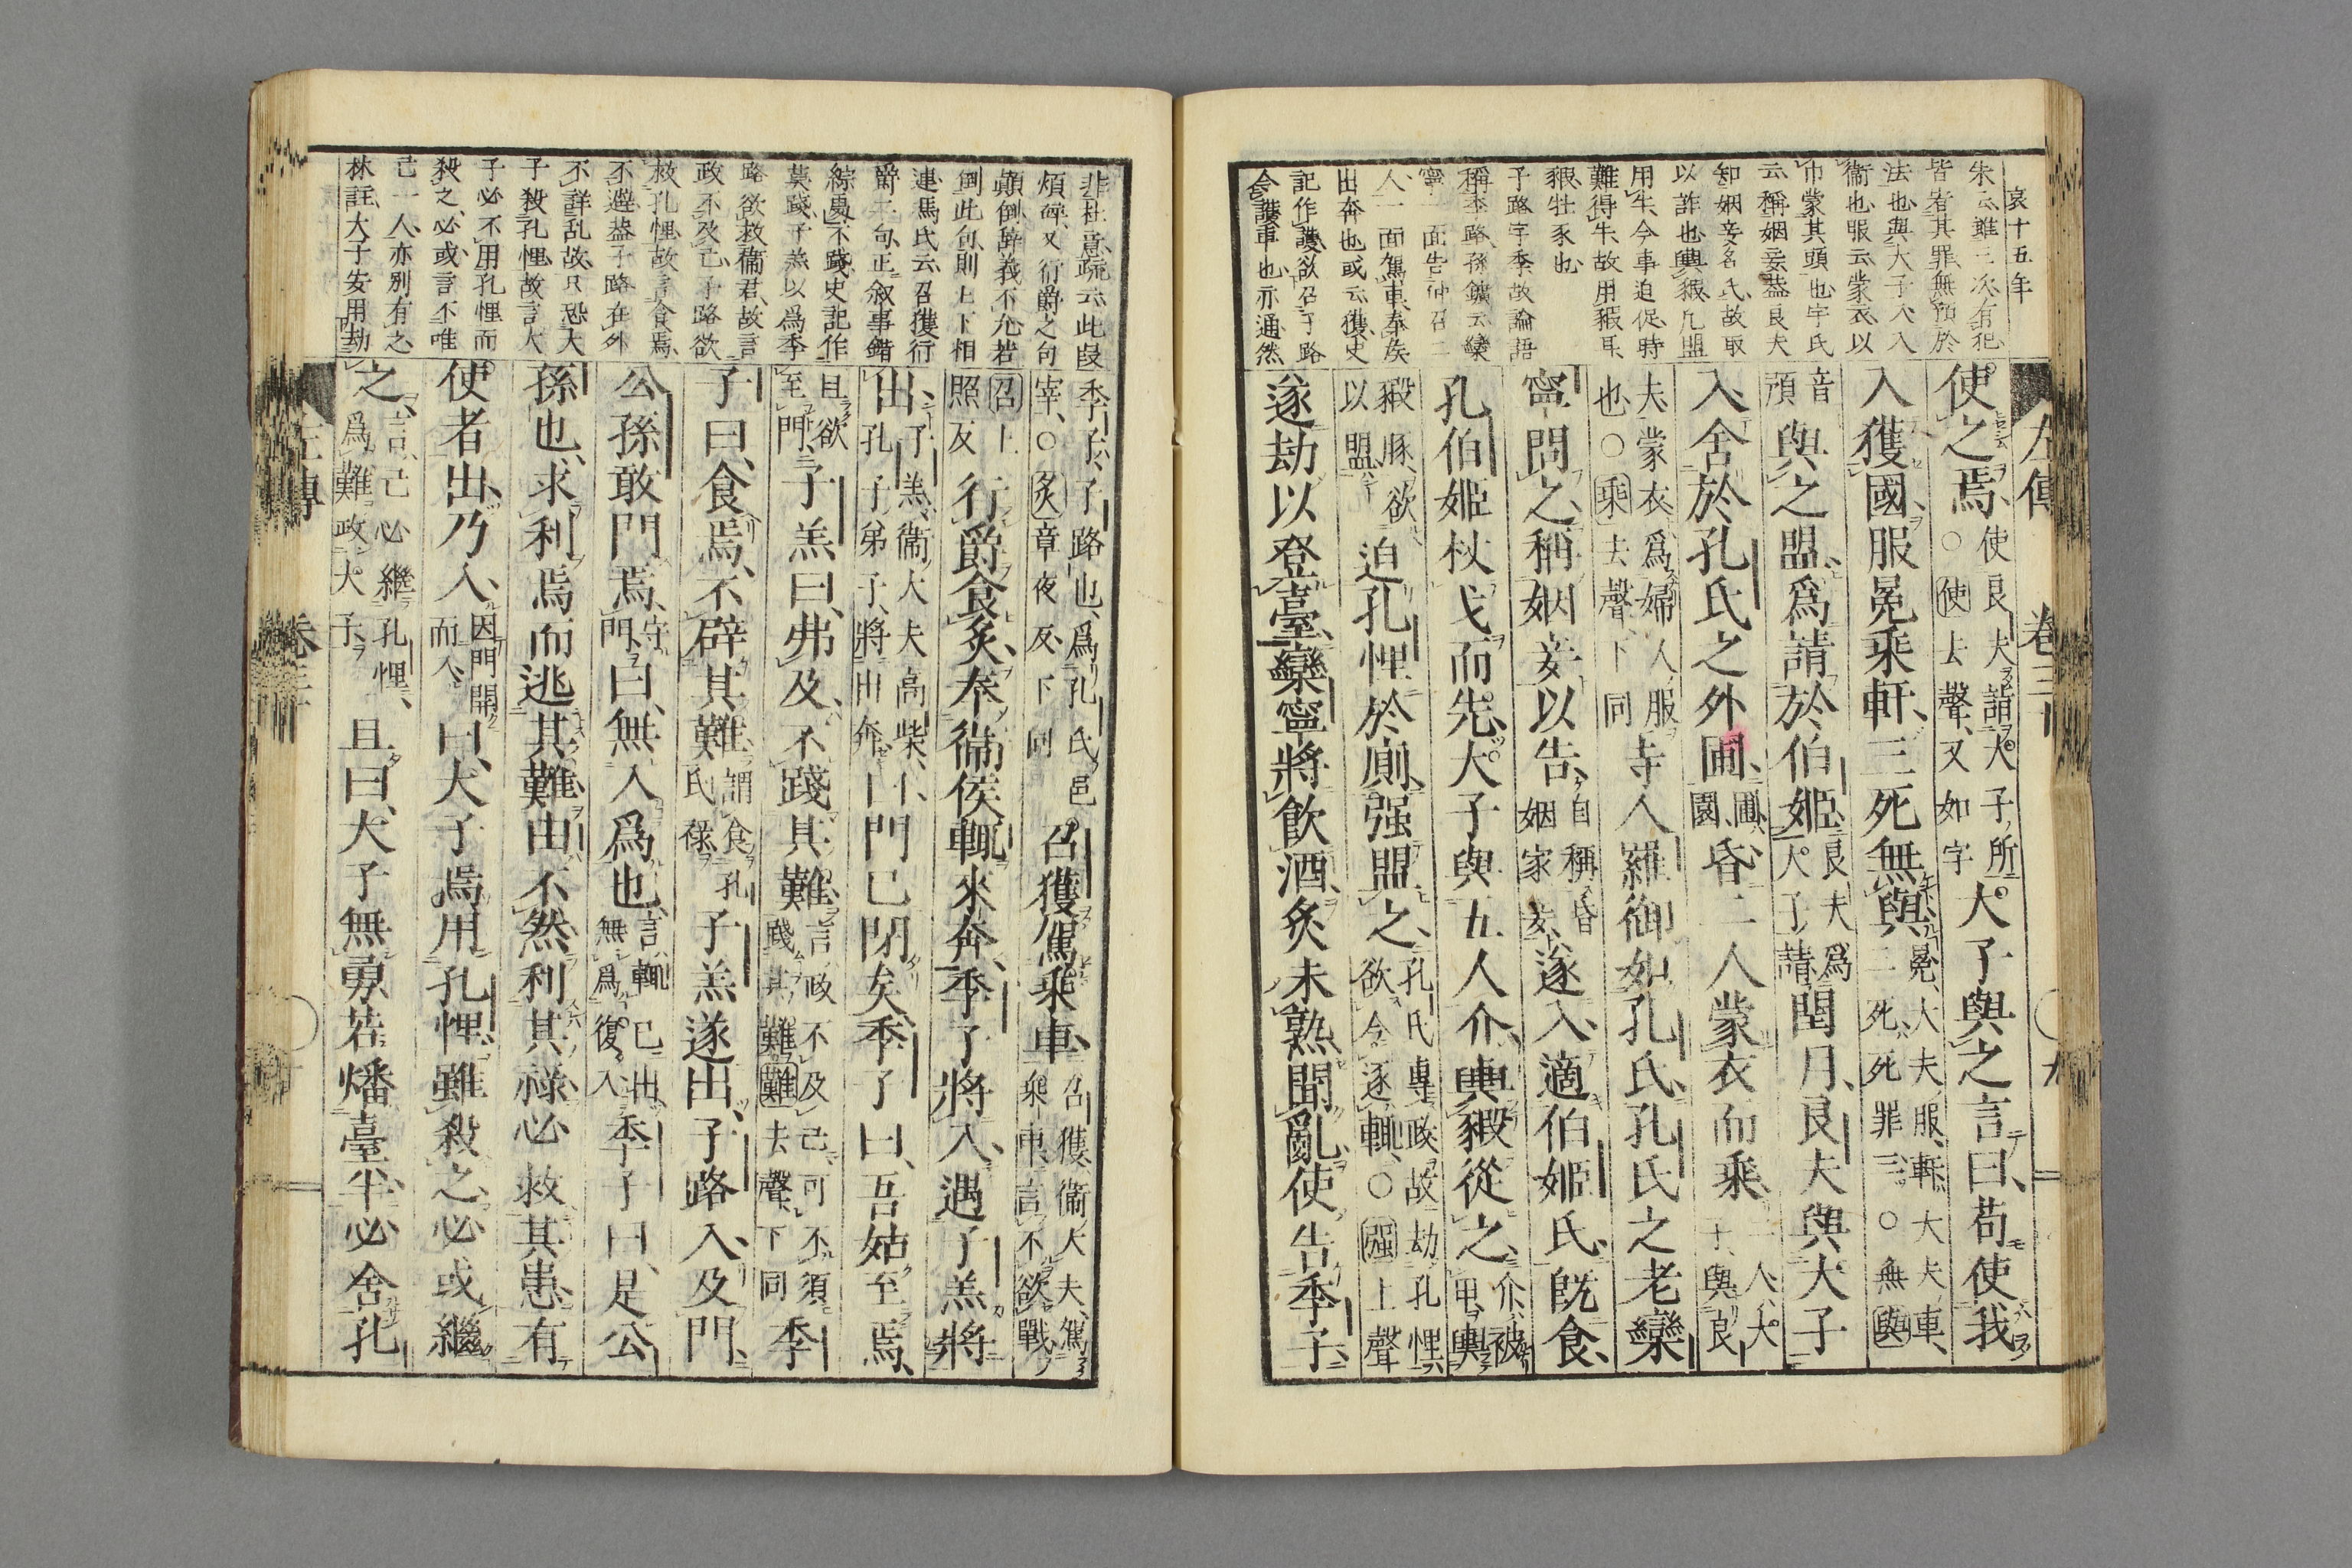 哀十五年
朱云雖三次有犯
皆宥其罪無預於
法也與大子入入
衞也服云蒙衣以
巾蒙其頭也字氏
云稱姻妾蓋良夫
知姻妾名氏故取
以詐也輿豭凡盟
用牛今事迫促時
難得牛故用豭耳
豭牡豕也
子路字季故論語
稱季路孫鑛云欒
寧一面告仲召二
人一面駕車奉矦
出奔也或云獲史
記作護欲召子路
令護車也亦通然
左傳 卷三十 九
使之焉使良夫詣大子所○使去聲又如字大子與之言曰苟使我
入獲國服冕乘軒三死無與冕大夫服軒大夫車三死死罪三○無與
音預與之盟爲請於伯姬良夫爲大子請閏月良夫與大子
入舍於孔氏之外圃圃園昏二人蒙衣而乘二人大子與良
夫蒙衣爲婦人服也○乘去聲下同寺人羅御如孔氏孔氏之老欒
寧問之稱姻妾以告自稱昏姻家妾遂入適伯姬氏旣食
孔伯姬杖戈而先大子與五人介輿豭從之介被甲輿
豭豚欲以盟迫孔悝於廁强盟之孔氏專政故劫孔悝欲令逐輒○强上聲
遂劫以登臺欒寧將飮酒炙未熟聞亂使告季子
非杜意疏云此段
煩碎又行爵之句
顚倒辭義不允若
倒此句則上下相
連馬氏云召獲行
爵二句正叙事錯
綜處不踐史記作
莫踐子羔以爲季
路欲救衞君故言
政不及己子路欲
救孔悝故言食焉
不避蓋子路在外
不詳乱故只恐大
子殺孔悝故言大
子必不用孔悝而
殺之必或言不唯
己一人亦別有之
林註大子安用劫
季子子路也爲孔氏邑宰○炙章夜反下同召獲駕乘車召獲衞大夫駕乘車言不欲戰
召上照反行爵食炙奉衞侯輒來奔季子將入遇子羔將
出子羔衞大夫高柴孔子弟子將出奔曰門已閉矣季子曰吾姑至焉
且欲至門子羔曰弗及不踐其難言政不及己可不須踐其難難去聲下同季
子曰食焉不辟其難謂食孔氏祿子羔遂出子路入及門
公孫敢門焉守門曰無入爲也言輒已出無爲復入季子曰是公
孫也求利焉而逃其難由不然利其祿必救其患有
使者出乃入因門開而入曰大子焉用孔悝雖殺之必或繼
之言己必繼孔悝爲難政大子且曰大子無勇若燔臺半必舍孔
左傳 卷三